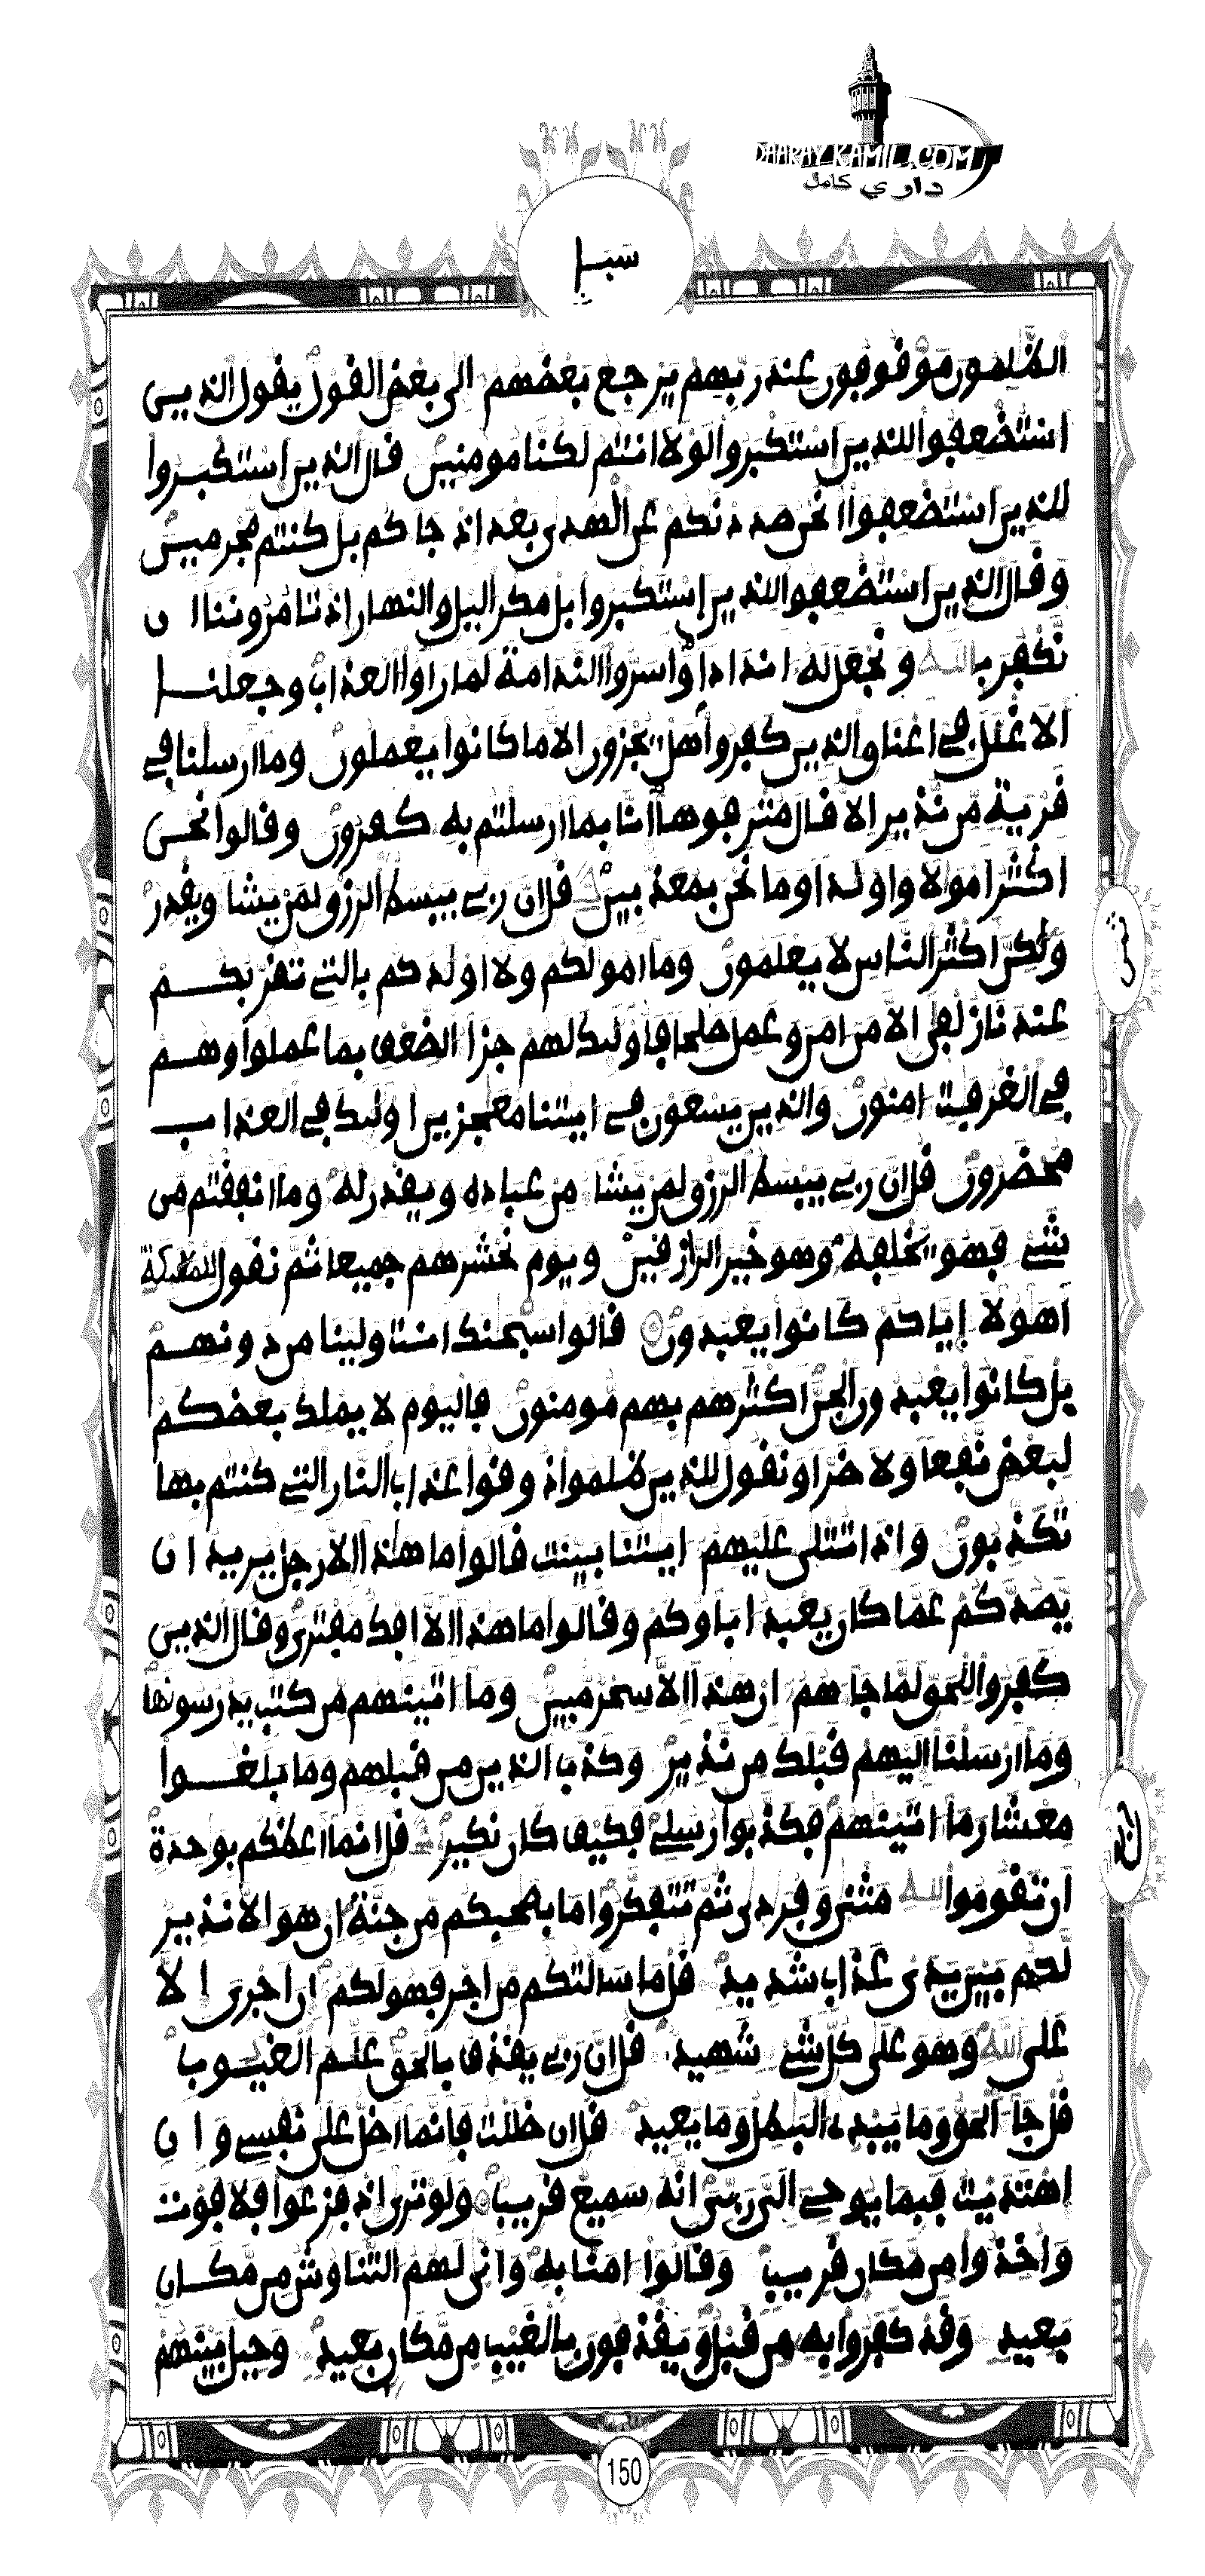 DAARAY KAMIL.COM
داري كامل
سبإ
الظلمون موقوفون عند ربهم يرجع بعضهم إلى بعض القول يقول الذين
استضعفوا للذين استكبروا لولا انتم لكنا مومنين قال الذين استكبروا
للذين استضعفوا انحن صددنكم عن الهدى بعد اذ جاكم بل كنتم مجرمين
وقال الذين استضعفوا للذين استكبروا بل مكر اليل والنهار اذ تامروننا ان
نكفر بالله ونجعل له اندادا واسروا الندامة لما راوا العذاب وجعلنا
الاغلل في اعناق الذين كفروا هل يجزون الا ما كانوا يعملون وما ارسلنا في
قرية من نذير الا قال مترفوها انا بما ارسلتم به كفرون وقالوا نحن
اكثر امولا واولدا وما نحن بمعذبين قل ان ربي يبسط الرزق لمن يشا ويقدر
ولكن اكثر الناس لا يعلمون وما امولكم ولا اولدكم بالتي تقربكم
عندنا زلفى الا من امن وعمل صلحا فاوليك لهم جزا الضعف بما عملوا وهم
في الغرفت امنون والذين يسعون في ايتنا معجزين اوليك في العذاب
محضرون قل ان ربي يبسط الرزق لمن يشا من عباده ويقدر له وما انفقتم من
شي فهو يخلفه وهو خير الرازقين ويوم نحشرهم جميعا ثم نقول للمليكة
اهولا إياكم كانوا يعبدون قالوا سبحنك انت ولينا من دونهم
بل كانوا يعبدون الجن اكثرهم بهم مومنون فاليوم لا يملك بعضكم
لبعض نفعا ولا ضرا ونقول للذين ظلموا ذوقوا عذاب النار التي كنتم بها
تكذبون واذا تتلى عليهم ايتنا بينت قالوا ما هذا الا رجل يريد ان
يصدكم عما كان يعبد اباوكم وقالوا ما هذا الا افك مفترى وقال الذين
كفروا للحق لما جاهم ان هذا الا سحر مبين وما اتينهم من كتب يدرسونها
وما ارسلنا اليهم قبلك من نذير وكذب الذين من قبلهم وما بلغوا
معشار ما اتينهم فكذبوا رسلي فكيف كان نكير قل انما اعظكم بوحدة
ان تقوموا لله مثنى وفردى ثم تتفكروا ما بصحبكم من جنة ان هو الا نذير
لكم بين يدى عذاب شديد قل ما سالتكم من اجر فهو لكم ان اجرى الا
على الله وهو على كل شي شهيد قل ان ربي يقذف بالحق علم الغيوب
قل جا الحق وما يبدئ البطل وما يعيد قل ان ضللت فانما اضل على نفسي وان
اهتديت فبما يوحي الى ربى انه سميع قريب ولو ترى اذ فزعوا فلا فوت
واخذوا من مكان قريب وقالوا امنا به وانى لهم التناوش من مكان
بعيد وقد كفروا به من قبل ويقذفون بالغيب من مكان بعيد وحيل بينهم
ثمن
150